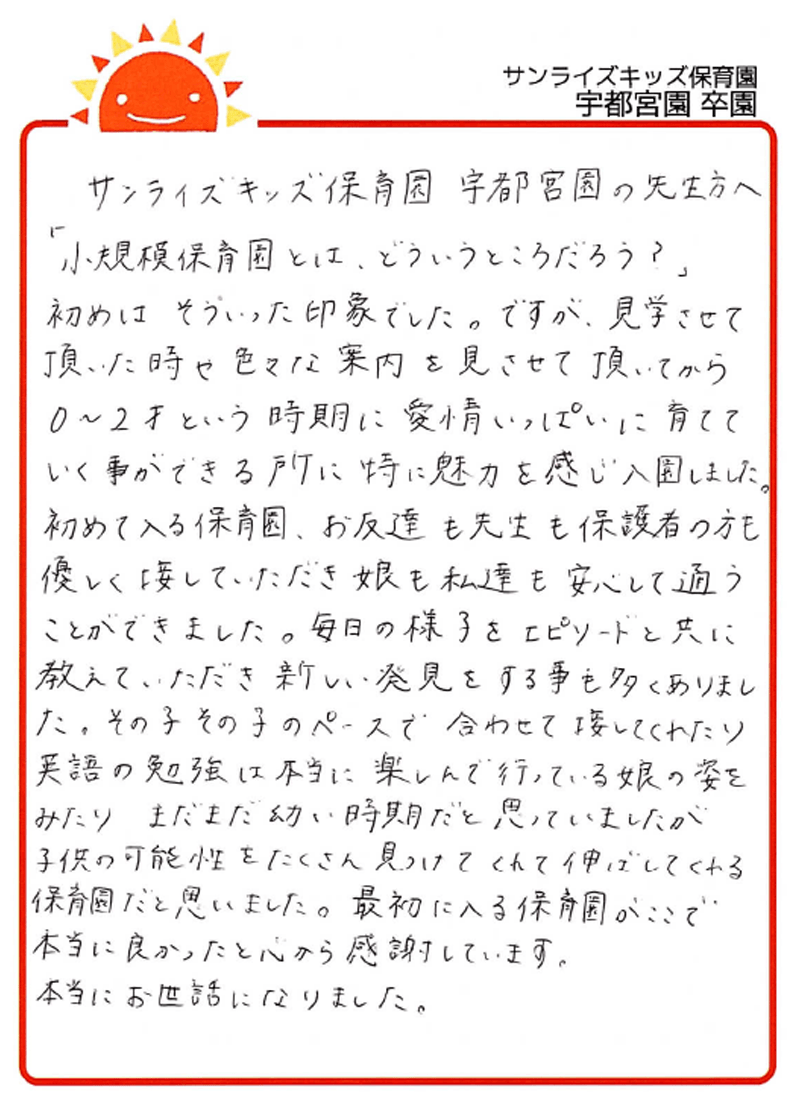 サンライズキッズ保育園
宇都宮園 卒園
サンライズキッズ保育園 宇都宮園の先生方へ
「小規模保育園とは、どういうところだろう?」
初めは そういった印象でした。ですが、見学させて
頂いた時や色々な案内を見させて頂いてから
0～2才という時期に愛情いっぱいに育てて
いく事ができる所に特に魅力を感じ入園しました。
初めて入る保育園、お友達も先生も保護者の方も
優しく接していただき娘も私達も安心して通う
ことができました。毎日の様子をエピソードと共に
教えていただき新しい発見をする事も多くありまし
た。その子その子のペースで合わせて接してくれたり
英語の勉強は本当に楽しんで行っている娘の姿を
みたり まだまだ幼い時期だと思っていましたが
子供の可能性をたくさん見つけてくれて伸ばしてくれる
保育園だと思いました。最初に入る保育園がここで
本当に良かったと心から感謝しています。
本当にお世話になりました。